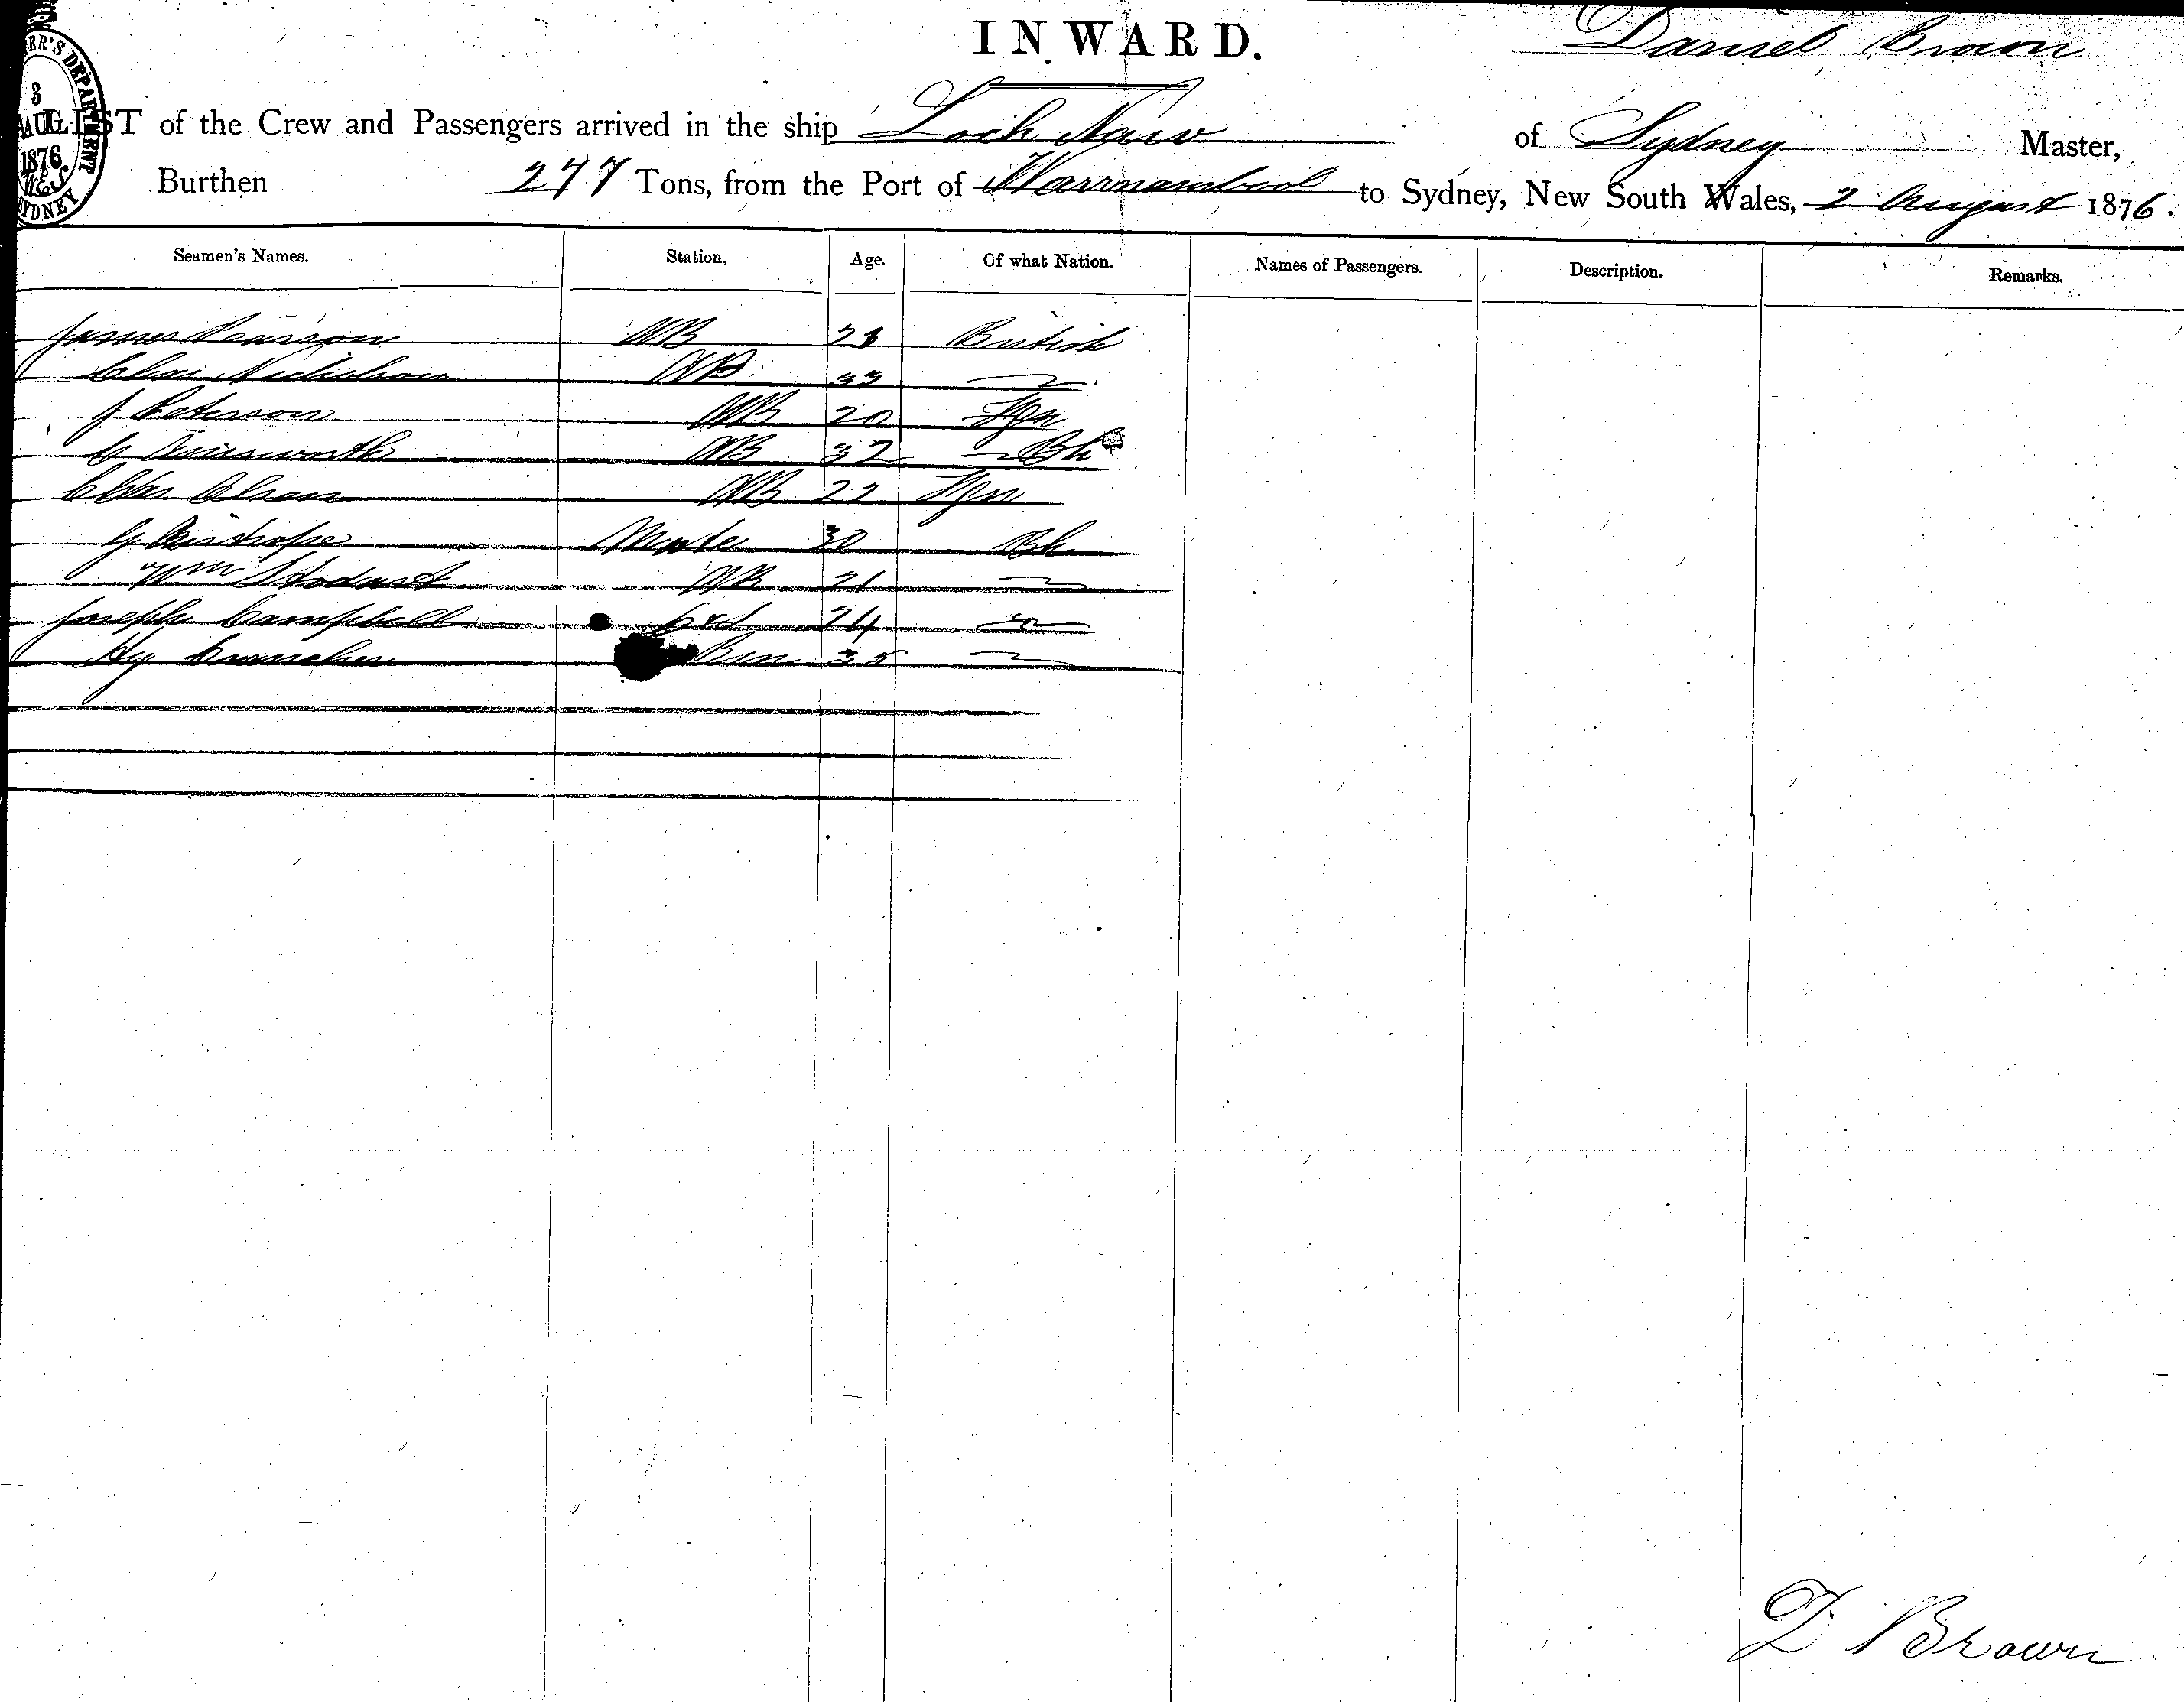 INWARD.
Daniel Brown
ER'S DEPARTMENT
3
AUG
1876
SYDNEY
LIST of the Crew and Passengers arrived in the ship Loch Naw of Sydney Master,
Burthen 277 Tons, from the Port of Warrnambool to Sydney, New South Wales, 2 August 1876.
Seamen's Names. Station, Age. Of what Nation. Names of Passengers. Description. Remarks.
James Pearson AB British
Chas Nicholson AB 33
J Peterson AB 20 Fgn
C Ainsworth AB 32 Bh
Chas Olsen AB 22 Fgn
G Mate 30 Bh
Wm Stodart AB 21
Joseph Campbell 24
Hy 35
D Brown